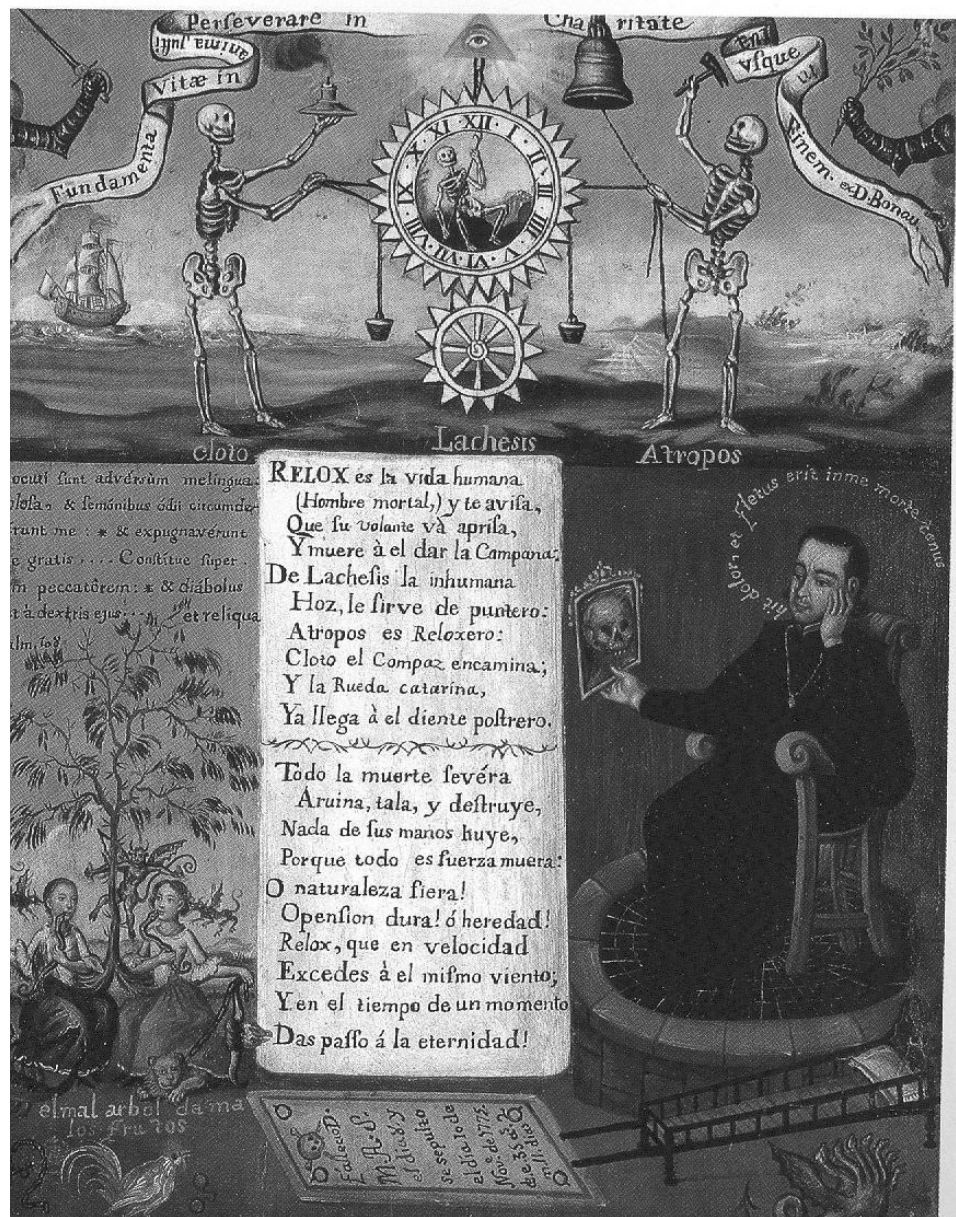 Perseverare in Charitate
Fundamenta
Vitæ in
anima justi
usque
in
Finem. ex D. Bonav
XII · I · II · III · IIII · V · VI · VII · VIII · IX · X · XI
Cloto
Lachesis
Atropos
ocuti sunt adversùm me lingua
losa, & semónibus ódii circumde
runt me : * & expugnavérunt
e gratis .... Constitue super
m peccatôrem : * & diábolus
t à dextris ejus et reliqua
RELOX es la vida humana
(Hombre mortal,) y te avisa,
Que su volante và aprisa,
Y muere à el dar la Campana;
De Lachesis la inhumana
Hoz, le sirve de puntero:
Atropos es Reloxero:
Cloto el Compaz encamina;
Y la Rueda catarina,
Ya llega à el diente postrero.
Todo la muerte sevéra
Aruina, tala, y destruye,
Nada de sus manos huye,
Porque todo es fuerza muera:
O naturaleza fiera!
O pension dura! ó heredad!
Relox, que en velocidad
Excedes à el mismo viento;
Y en el tiempo de un momento
Das passo á la eternidad!
Fit dolor, et Fletus erit in me morte
el mal arbol da ma
los frutos
Falleció
M.A.S.
el dia
y
se sepultó
el dia 10 de
Nov. e de 1775.